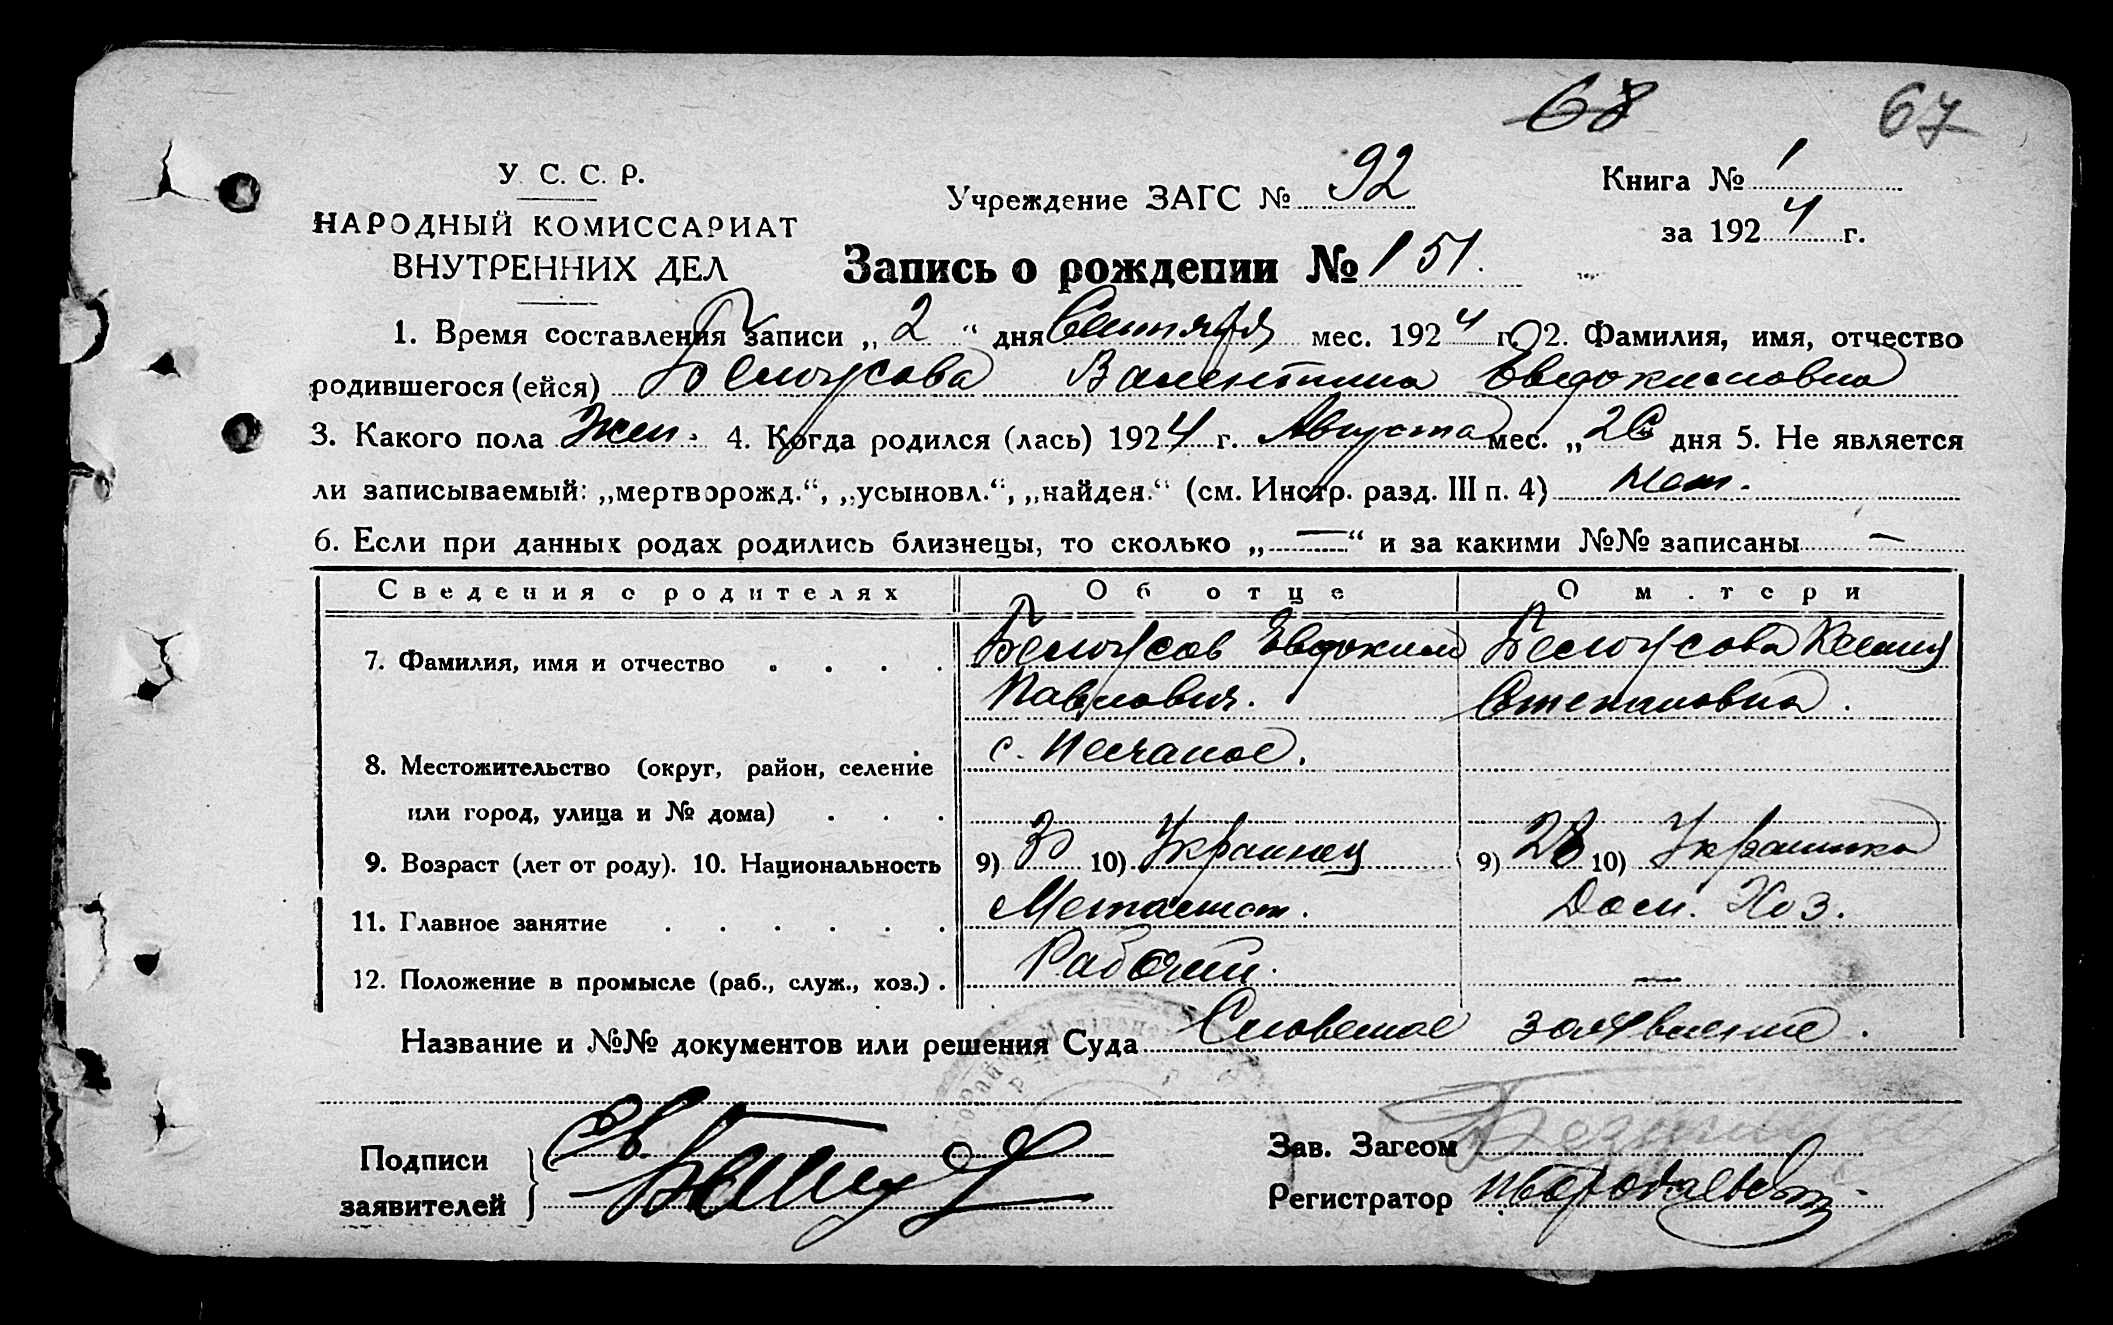 68 67
У. С. С. Р.
НАРОДНЫЙ КОМИССАРИАТ
ВНУТРЕННИХ ДЕЛ
Учреждение ЗАГС № 92
Книга № 1
за 1924 г.
Запись о рождении № 151.
1. Время составления записи „ 2 “ дня Сентября мес. 1924 г. 2. Фамилия, имя, отчество
родившегося (ейся) Белоусова Валентина Евдокимовна
3. Какого пола Жен. 4. Когда родился (лась) 1924 г. Августа мес. „ 26 дня 5. Не является
ли записываемый: „мертворожд.“, „усыновл.“, „найден.“ (см. Инстр. разд. III п. 4) Нет.
6. Если при данных родах родились близнецы, то сколько „ — “ и за какими №№ записаны —
Сведения о родителях Об отце О м.тери
7. Фамилия, имя и отчество . . . . Белоусов Евдоким Белоусова Ксения
Павлович. Степановна.
8. Местожительство (округ, район, селение с. Песчаное.
или город, улица и № дома) . . .
9. Возраст (лет от роду). 10. Национальность 9) 30 10) Украинец 9) 28 10) Украинка
11. Главное занятие . . . . . . Металист. Дом. Хоз.
12. Положение в промысле (раб., служ., хоз.) . Рабочий. —
Название и №№ документов или решения Суда Словесное заявление.
Подписи
заявителей
Зав. Загсом
Регистратор